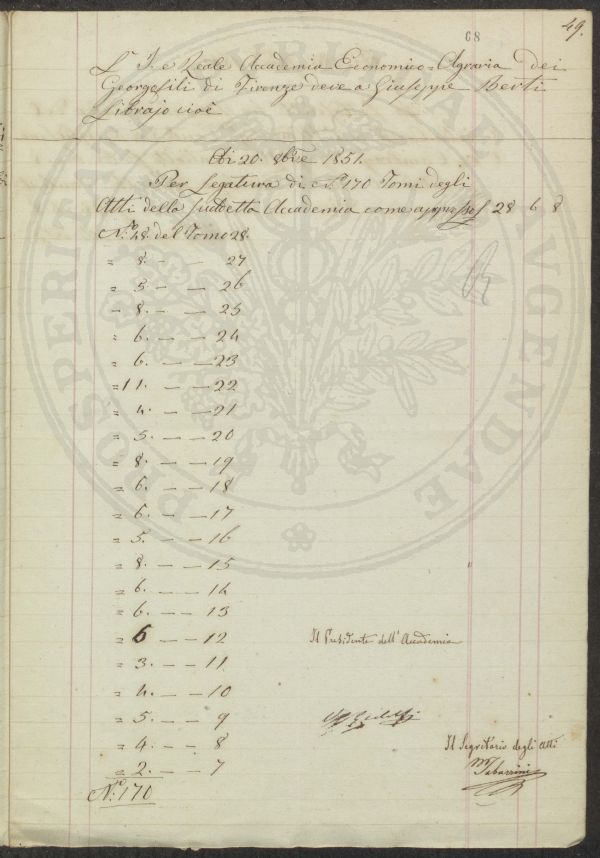 68
49.
L' I. e Reale Accademia Economico=Agraria dei
Georgofili di Firenze deve a Giuseppe Berti
Librajo cioè
Adi 20. 8bre 1851.
Per Legatura di No. 170 Tomi degli
Atti della suddetta Accademia come appresso £ 28 6 8
No. 48. del Tomo 28.
= 8. - - 27
= 5 - - 26
- 8. - - 25
= 6. - - 24
= 6. - - 23
= 11. - - 22
= 4. - - 21
= 5. - - 20
= 8. - - 19
= 6. - - 18
= 6. - - 17
= 5. - - 16
= 8. - - 15
= 6. - - 14
= 6. - - 13
= 6 - - 12
Il Presidente dell' Accademia
= 3. - - 11
= 4. - - 10
= 5. - - 9
= 4. - - 8
Il Segretario degli Atti
= 2. - - 7
M Tabarrini
No. 170
PROSPERITATI PUBLICAE AUGENDAE